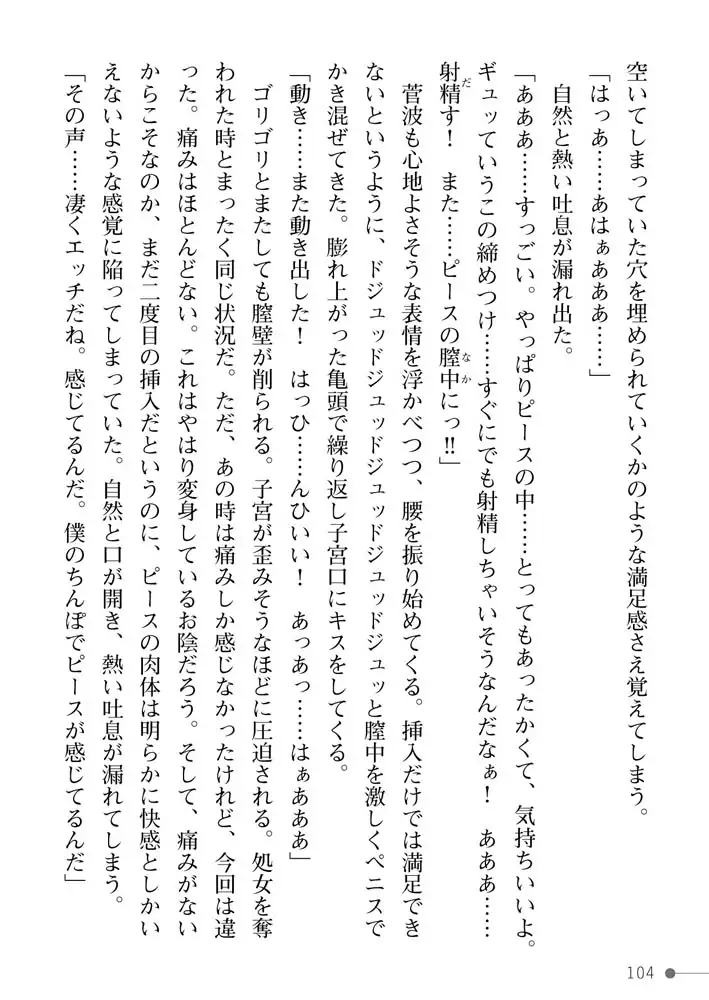 空いてしまっていた穴を埋められていくかのような満足感さえ覚えてしまう。
「はっあ……あはぁあああ……」
自然と熱い吐息が漏れ出た。
「あああ……すっごい。やっぱりピースの中……とってもあったかくて、気持ちいいよ。
ギュッていうこの締めつけ……すぐにでも射精しちゃいそうなんだなぁ！　あああ……
射精す！　また……ピースの膣中にっ!!」
菅波も心地よさそうな表情を浮かべつつ、腰を振り始めてくる。挿入だけでは満足でき
ないというように、ドジュッドジュッドジュッドジュッと膣中を激しくペニスで
かき混ぜてきた。膨れ上がった亀頭で繰り返し子宮口にキスをしてくる。
「動き……また動き出した！　はっひ……んひいい！　あっあっ……はぁあああ」
ゴリゴリとまたしても膣壁が削られる。子宮が歪みそうなほどに圧迫される。処女を奪
われた時とまったく同じ状況だ。ただ、あの時は痛みしか感じなかったけれど、今回は違
った。痛みはほとんどない。これはやはり変身しているお陰だろう。そして、痛みがない
からこそなのか、まだ二度目の挿入だというのに、ピースの肉体は明らかに快感としかい
えないような感覚に陥ってしまっていた。自然と口が開き、熱い吐息が漏れてしまう。
「その声……凄くエッチだね。感じてるんだ。僕のちんぽでピースが感じてるんだ」
104